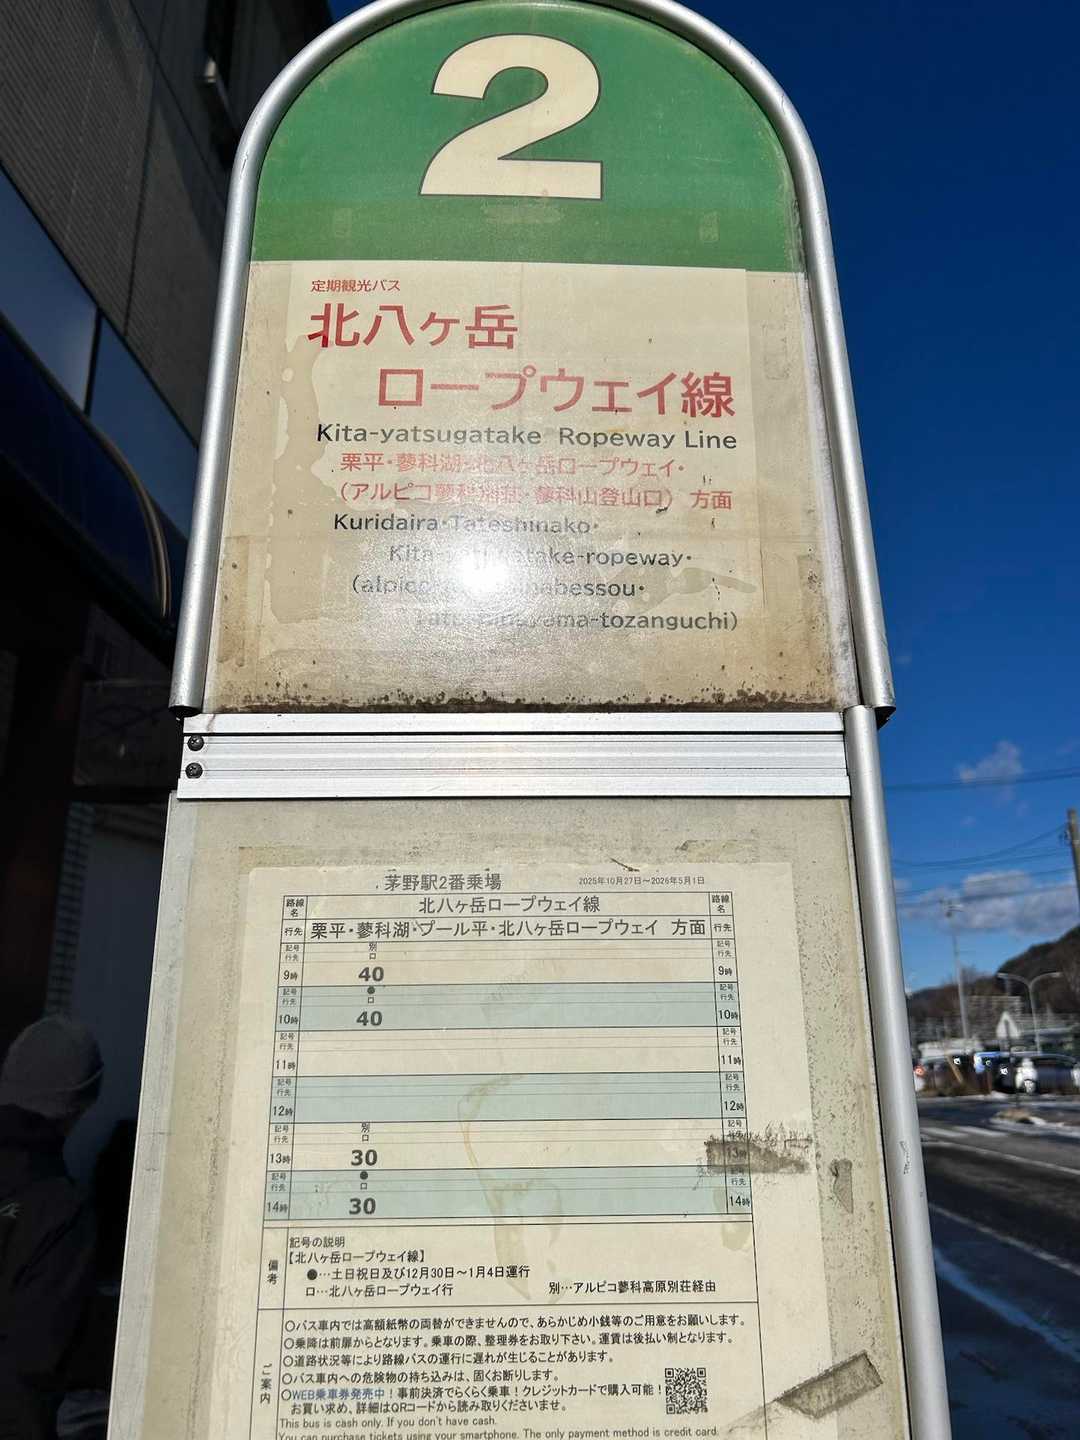 2
定期観光バス
北八ヶ岳
ロープウェイ線
Kita-yatsugatake Ropeway Line
栗平・蓼科湖・北八ヶ岳ロープウェイ・
(アルピコ蓼科別荘・蓼科山登山口) 方面
Kuridaira・Tateshinako・
Kita-yatsugatake-ropeway・
(alpico-
bessou・
yama-tozanguchi)
茅野駅2番乗場 2025年10月27日~2026年5月1日
路線名 北八ヶ岳ロープウェイ線 路線名
行先 栗平・蓼科湖・プール平・北八ヶ岳ロープウェイ 方面 行先
記号 別 記号
行先 ロ 行先
9時 40 9時
記号 ● 記号
行先 ロ 行先
10時 40 10時
記号 記号
行先 行先
11時 11時
記号 記号
行先 行先
12時 12時
記号 別 記号
行先 ロ 行先
13時 30 13時
記号 ● 記号
行先 ロ 行先
14時 30 14時
備考
記号の説明
【北八ヶ岳ロープウェイ線】
●…土日祝日及び12月30日~1月4日運行
ロ…北八ヶ岳ロープウェイ行 別…アルピコ蓼科高原別荘経由
ご案内
○バス車内では高額紙幣の両替ができませんので、あらかじめ小銭等のご用意をお願いします。
○乗降は前扉からとなります。乗車の際、整理券をお取り下さい。運賃は後払い制となります。
○道路状況等により路線バスの運行に遅れが生じることがあります。
○バス車内への危険物の持ち込みは、固くお断りします。
○WEB乗車券発売中!事前決済でらくらく乗車!クレジットカードで購入可能!
お買い求め、詳細はQRコードから読み取りくださいませ。
This bus is cash only. If you don't have cash.
You can purchase tickets using your smartphone. The only payment method is credit card.